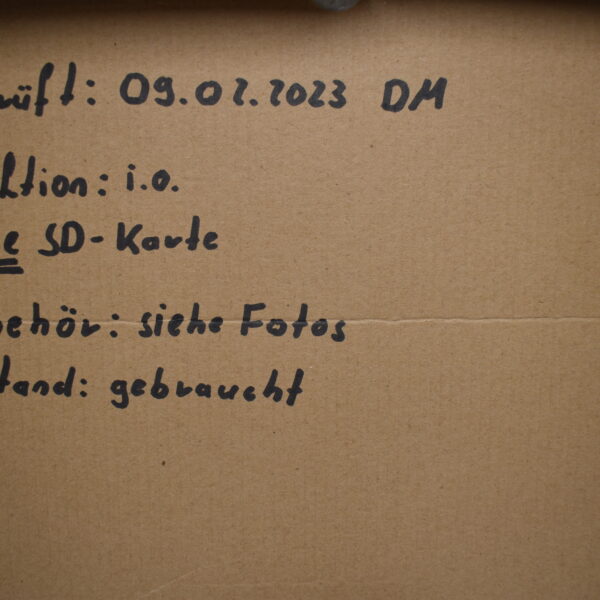 rüft: 09.02.2023 DM
ktion: i.o.
e SD-Karte
behör: siehe Fotos
tand: gebraucht